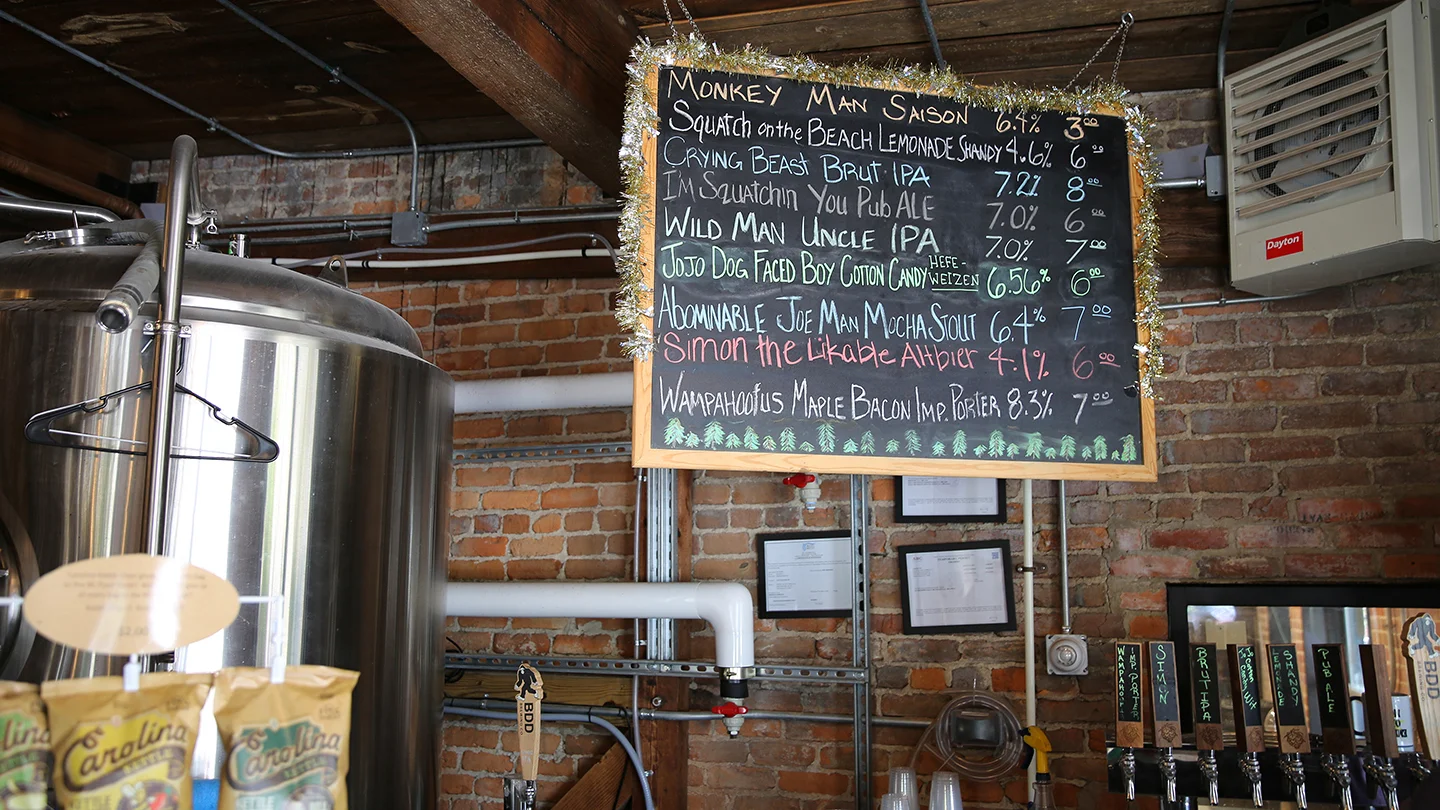 MONKEY MAN SAISON 6.4% 3.00
Squatch on the BEACH LEMONADE SHANDY 4.6% 6.00
CRYING BEAST BRUT IPA 7.2% 8.00
I'M SQUATCHIN YOU PUB ALE 7.0% 6.00
WILD MAN UNCLE IPA 7.0% 7.00
JOJO DOG FACED BOY COTTON CANDY HEFE-WEIZEN 6.56% 6.00
ABOMINABLE JOE MAN MOCHA STOUT 6.4% 7.00
Simon the Likable Altbier 4.1% 6.00
WAMPAHOOFUS MAPLE BACON IMP. PORTER 8.3% 7.00
Dayton
BDD
IMP. PORTER
SIMON
BRUT IPA
LEMONADE
SHANDY
PUB ALE
BDD
Carolina
Carolina
KETTLE